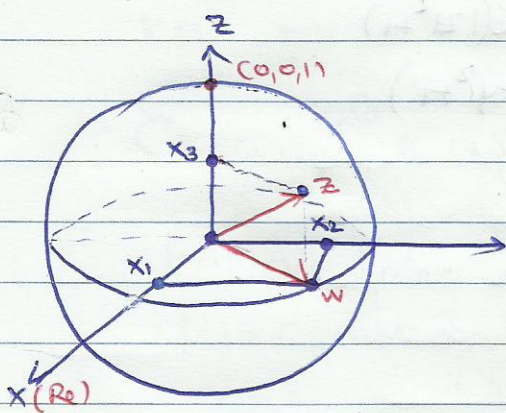 Z
(0,0,1)
X3
Z
X2
X1
W
X (Re)